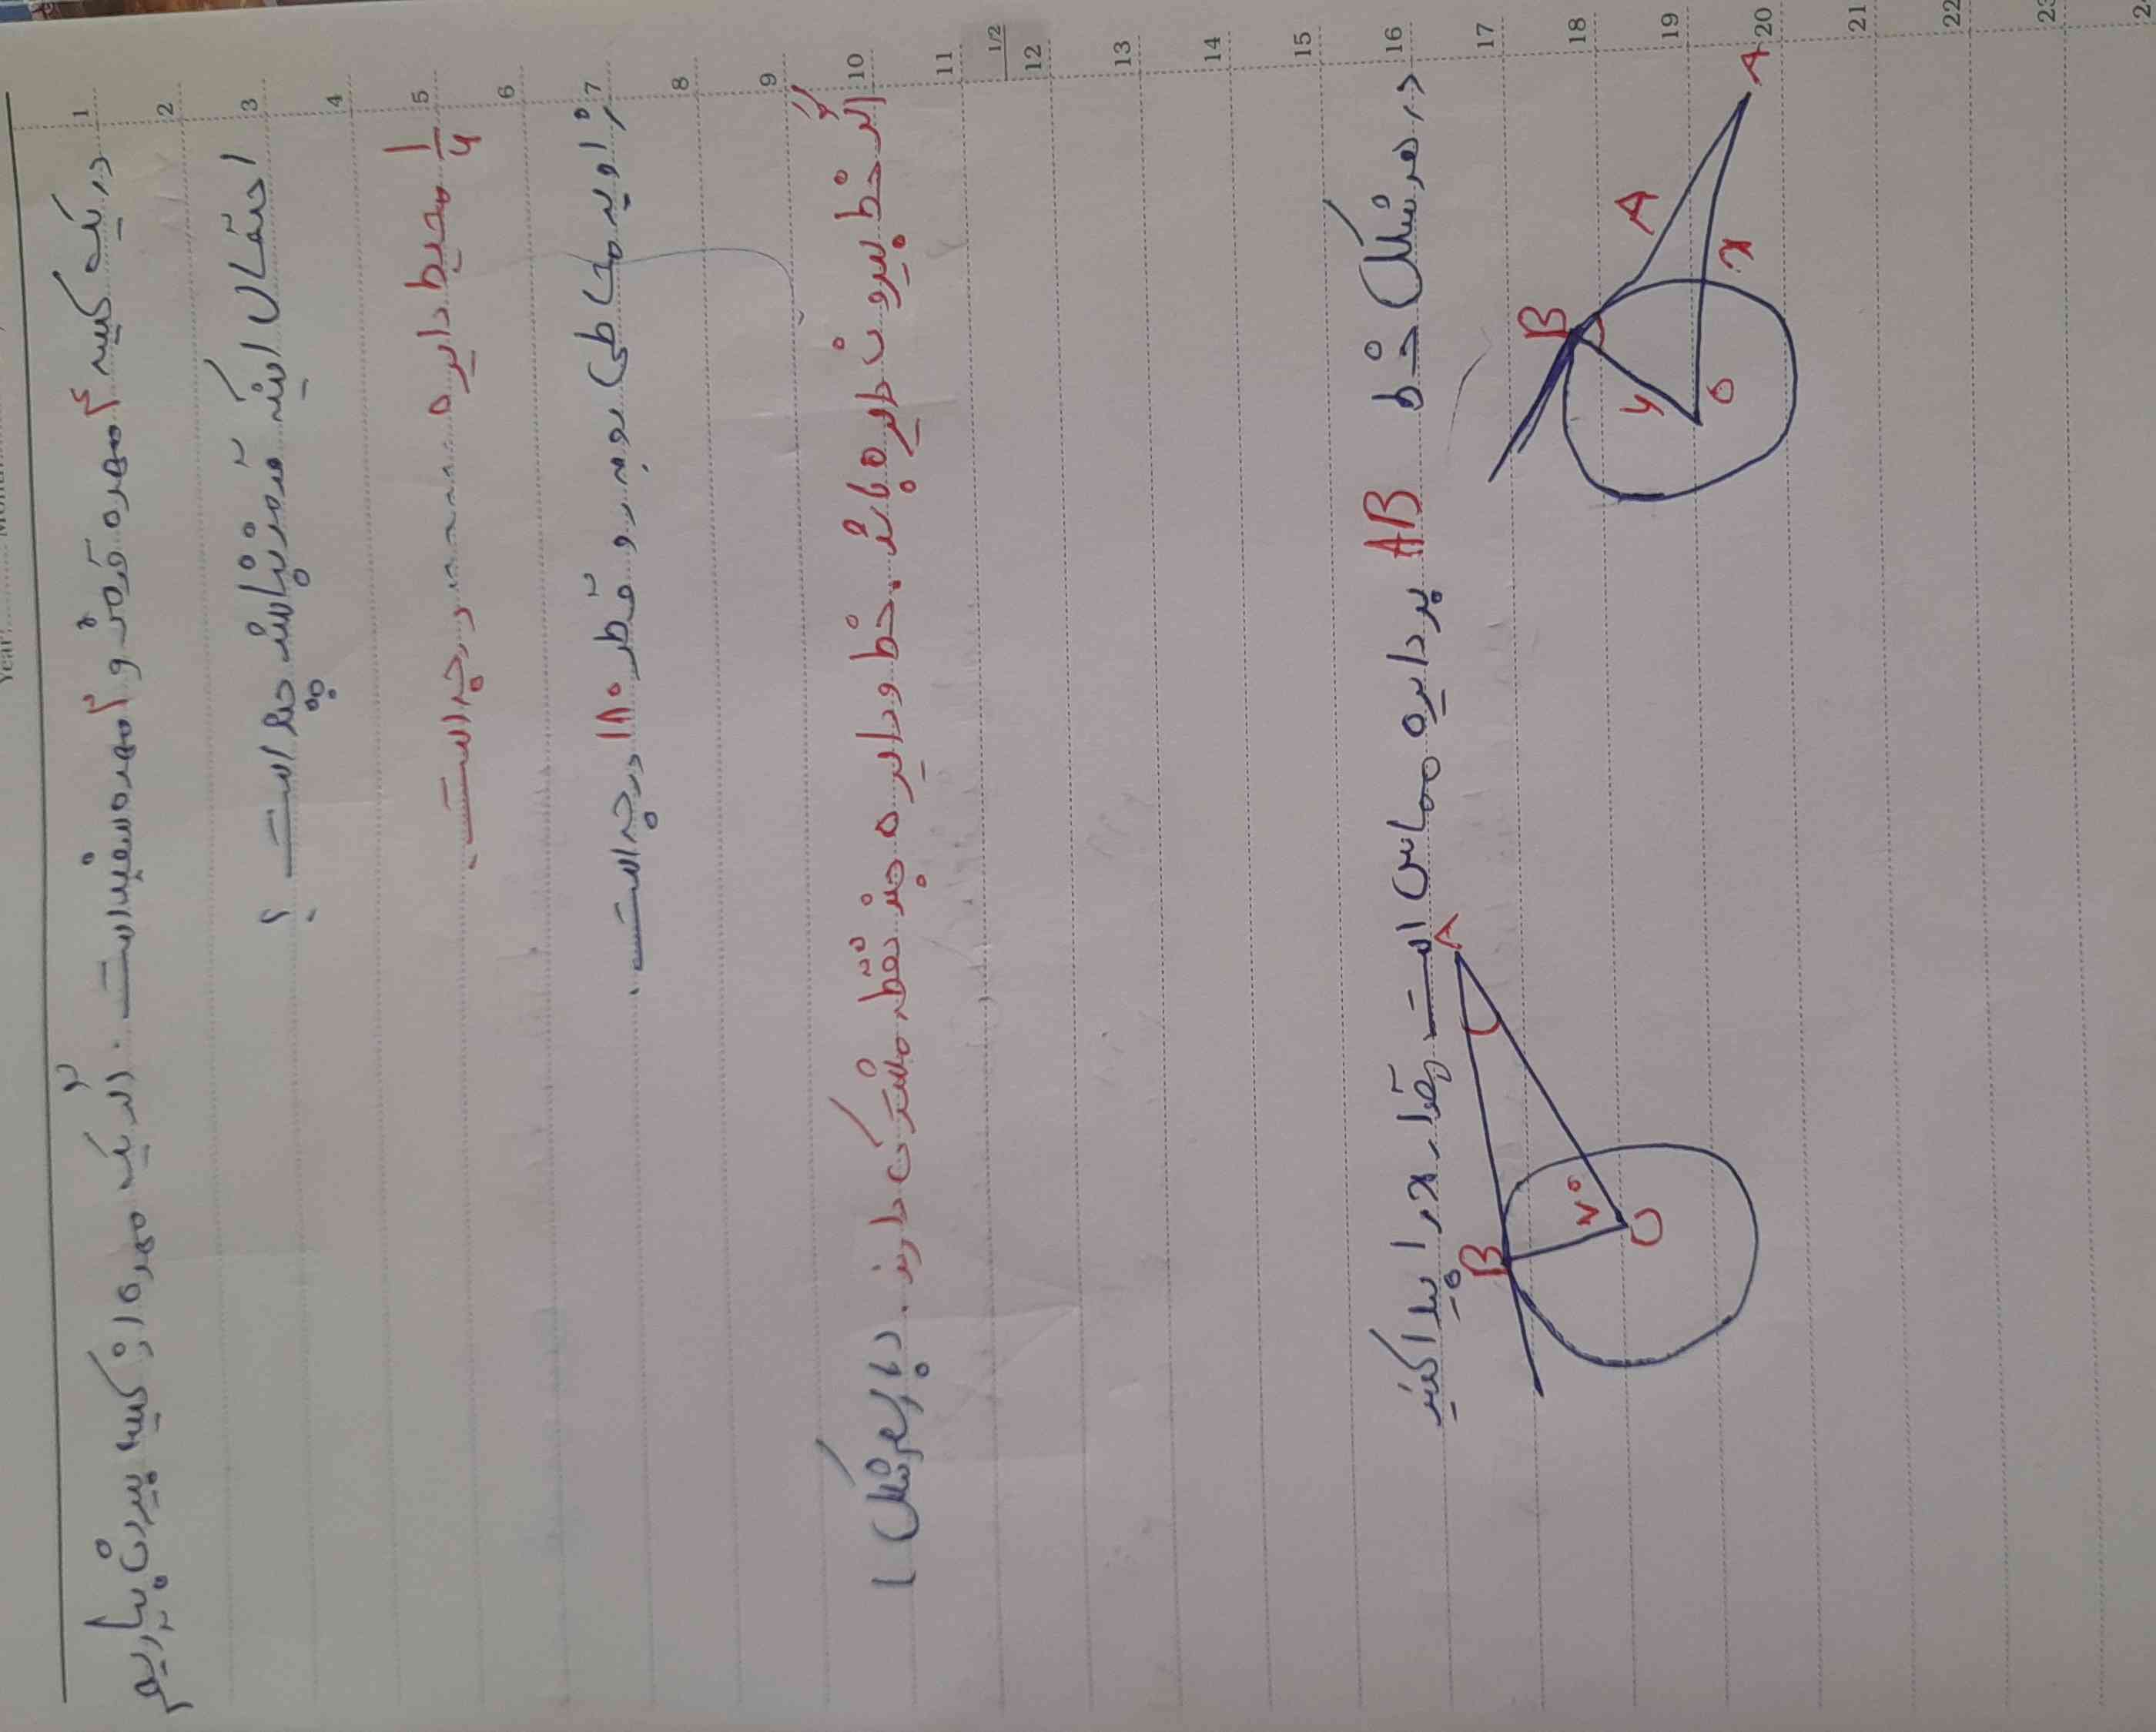 در یک کیسه ۴ مهره قرمز و ۳ مهره سفید است . اگر یک مهره از کیسه بیرون بیاریم
احتمال اینکه قرمز نباشد چقدر است ؟
۱/۶ محیط دایره ...... درجه است .
زاویه محاطی روبه رو قطر ۱۸۰ درجه است .
اگر خط بیرون دایره باشد . خط و دایره چند نقطه مشترک دارند . با رسم شکل
در هر شکل خط AB بر دایره مماس است مقدار x را پیدا کنید
B A A
x O
B A
۷۰ O
1
2
3
4
5
6
7
8
9
10
11
1/2
12
13
14
15
16
17
18
19
20
21
22